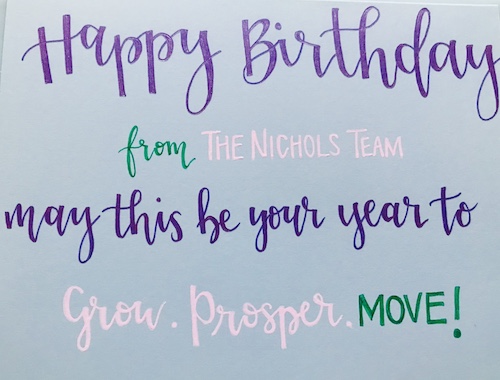 Happy Birthday
from THE NICHOLS TEAM
may this be your year to
Grow. Prosper. MOVE!